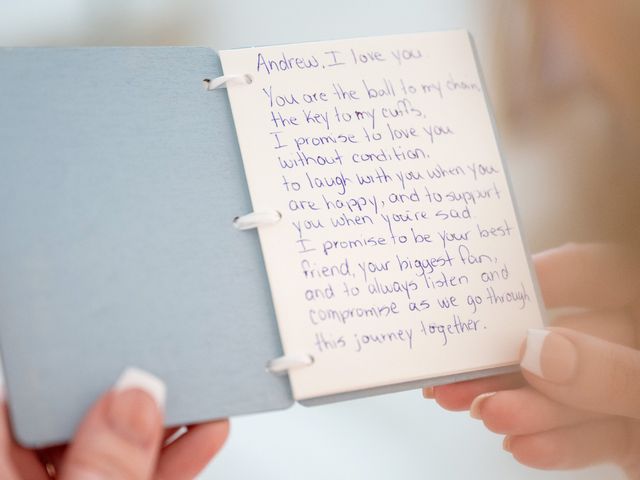 Andrew, I love you.
You are the ball to my chain
the key to my cuffs,
I promise to love you
without condition.
to laugh with you when you
are happy, and to support
you when you're sad.
I promise to be your best
friend, your biggest fan,
and to always listen and
compromise as we go through
this journey together.